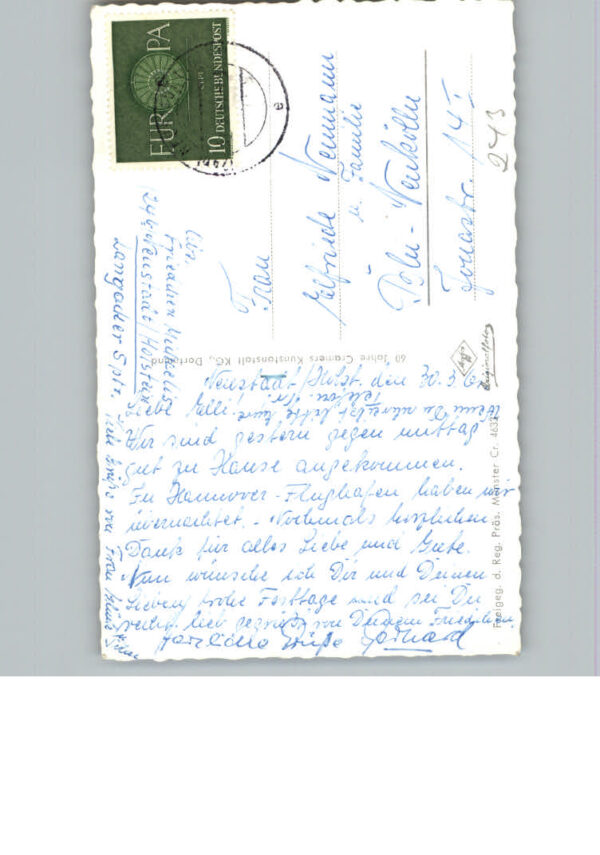 Neustadt/Holst. den 30.3.61
Liebe Elli!
Wir sind gestern gegen mittag
gut zu Hause angekommen.
In Hannover-Flughafen haben wir
übernachtet. - Nochmals herzlichen
Dank für alles Liebe und Gute.
Nun wünsche ich Dir und Deinen
Lieben frohe Festtage und sei Du
recht lieb gegrüßt von Deinem
Herzliche Grüße Gerhard
Telefon Nr.
EUROPA
10 DEUTSCHE BUNDESPOST
Frau
Elfriede Neumann
u. Familie
Bln-Neukölln
Jonasstr. 14
243
Abs.
(24b) Neustadt/Holstein
60 Jahre Cramers Kunstanstalt KG., Dortmund
Agfa
Originalfoto
Freigeg. d. Reg. Präs. Münster Cr. 463